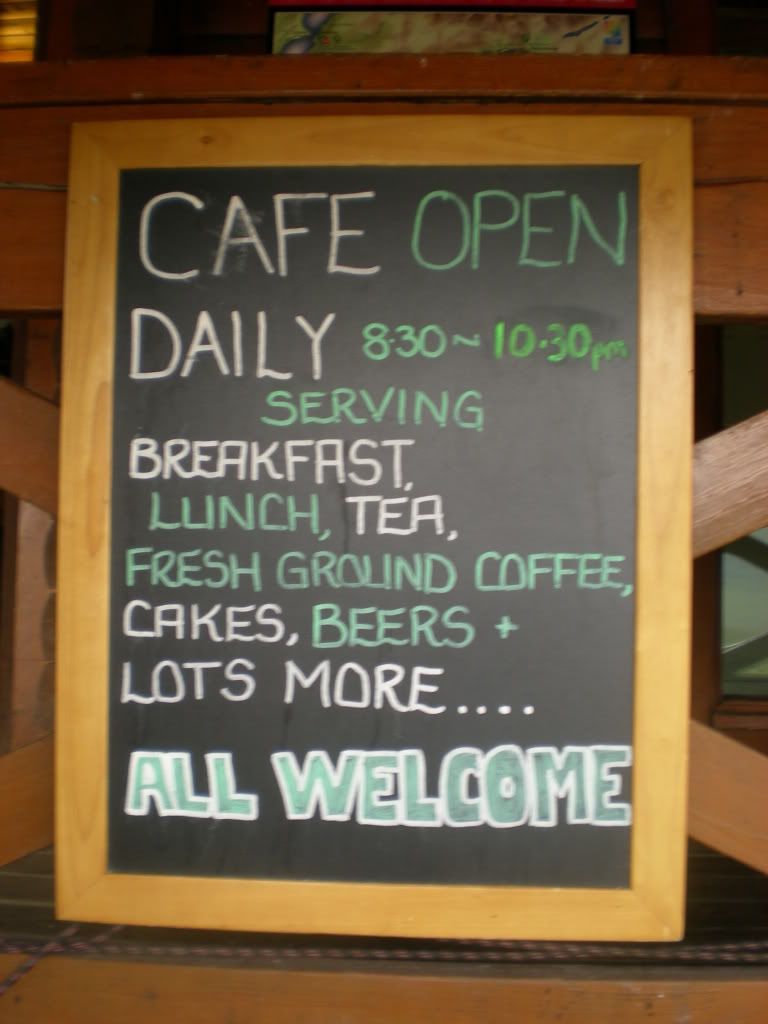 CAFE OPEN
DAILY 8.30 ~ 10.30pm
SERVING
BREAKFAST,
LUNCH, TEA,
FRESH GROUND COFFEE,
CAKES, BEERS +
LOTS MORE....
ALL WELCOME